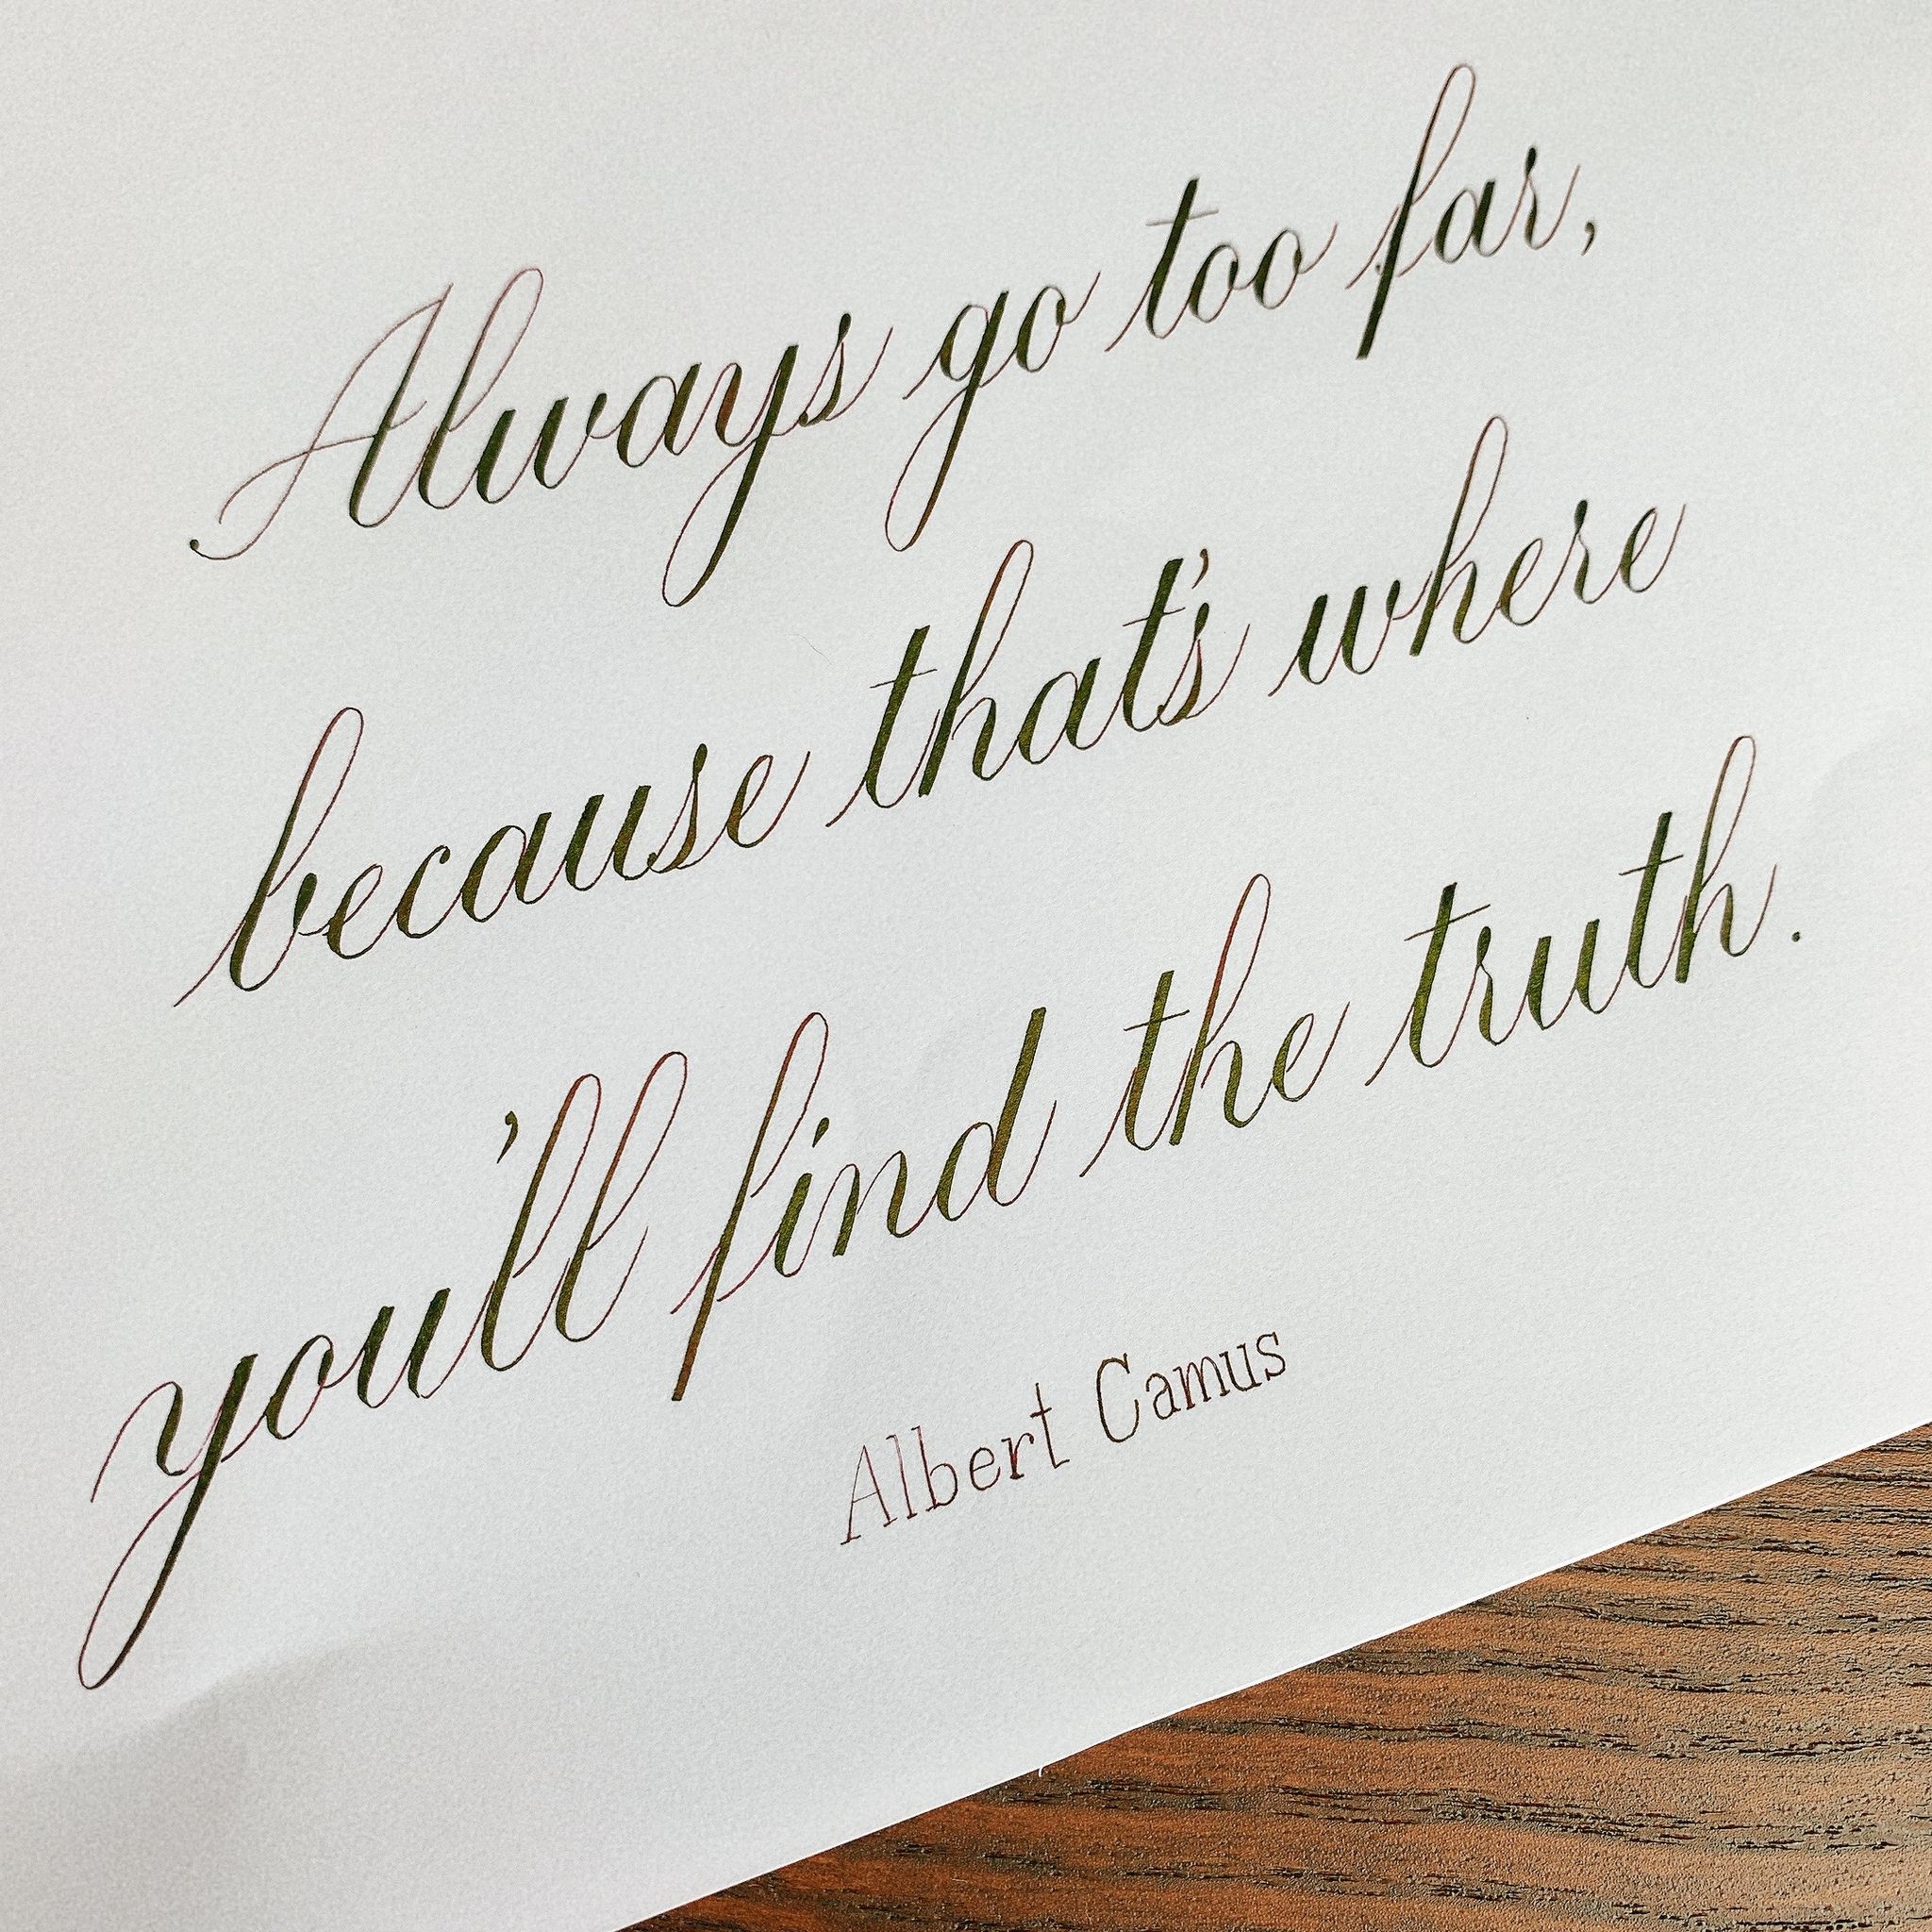 Always go too far,
because that's where
you'll find the truth.
Albert Camus